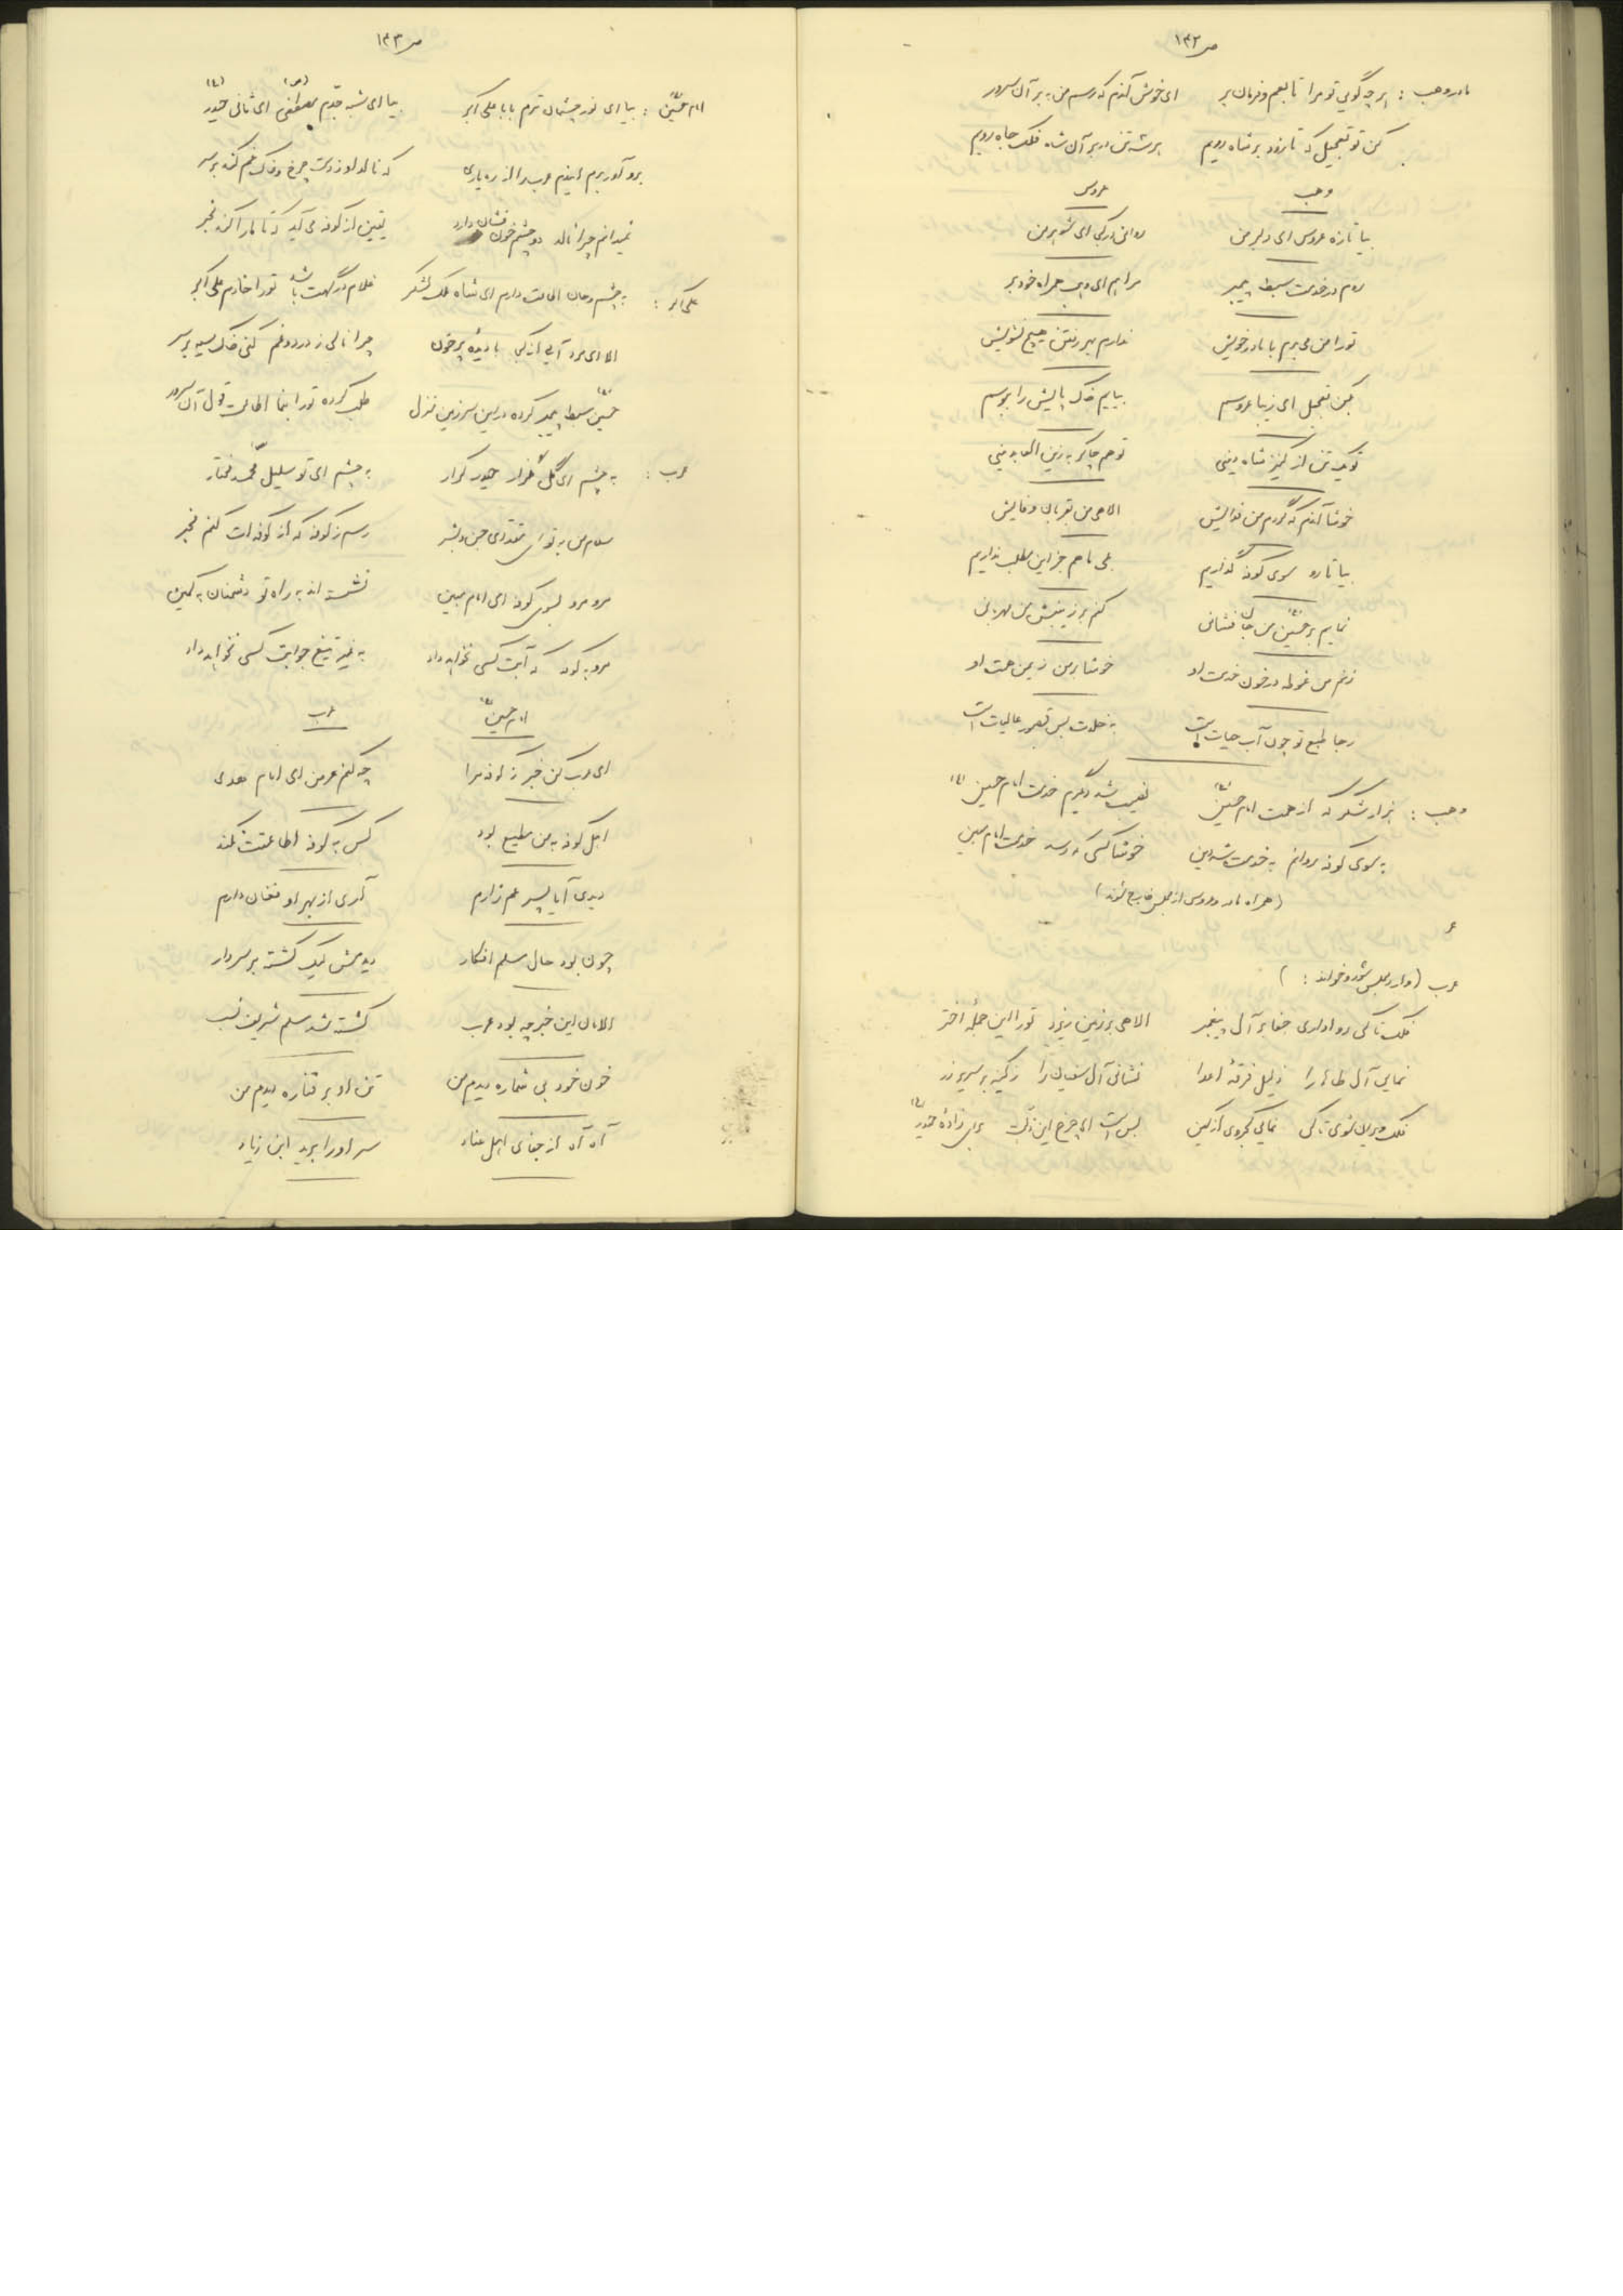 ص ۱۳۲
مادر وهب : هر چه گویی تو مرا تابعم و فرمان بر ای خوش آندم که رسم من به بر آن سرور
کن تو تعجیل که تا زود بر شاه رویم بر شه تن در بر آن شاه فلک جاه رویم
وهب عروس
بیا تازه عروس ای دلبر من روانی در کجا ای شوهر من
روم در خدمت سبط پیمبر مرا هم ای وهب همراه خود بر
تو را من می برم با مادر خویش ندارم بهر رفتن هیچ تشویش
بکن تعجیل ای زیبا عروسم بیایم خاک پایش را ببوسم
تویی کنیز شاه دینی تو هم چاکر به زین العابدینی
خوشا آندم که گردم من فدایش الاهی من بقربان وفایش
بیا تا رو سوی کوفه گذاریم بلی ما هم جز این مطلب نداریم
نمایم بر حسین من جان فشانی کنم بر زینبش من مهربانی
زنم من غوطه در خون خدمت او خوشا بر من ز یمن همت او
رجا طبع تو چون آب حیات است به خلدت بس قصور عالیات است
وهب : هزار شکر که از همت امام حسین (ع) نصیب شد دگرم خدمت امام حسین (ع)
به سوی کوفه روانم به خدمت شه دین خوشا کسی که رسد خدمت امام مبین
(همراه مادر و عروس از مجلس خارج شوند)
عرب (وارد مجلس شود و خواند : )
فلک تا کی روا داری جفا بر آل پیغمبر الاهی بر زمین ریزد تو را این جمله اختر
نمایی آل طاها را ذلیل فرقهٔ اعدا نشانی آل سفیان را ز کینه بر سریر زر
فلک ویران شوی تا کی نمایی کجروی از کین بس است ای چرخ این ذلت برای زادهٔ حیدر (ع)
ص ۱۳۳
امام حسین (ع) : بیا ای نور چشمان ترم بابا علی اکبر بیا ای شبه جدم مصطفی (ص) ای ثانی حیدر (ع)
برو آور برم ایندم عرب را از ره یاری که نالد او ز دست چرخ و خاک غم کند بر سر
نمیدانم چرا نالد دو چشم خون فشان دارد یقین از کوفه می آید که تا ما را کند مخبر
علی اکبر : به چشم و جان اطاعت دارم ای شاه ملک لشکر غلام درگهت باشد تو را خادم علی اکبر
الا ای مرد آیی از کجا با دیدهٔ پرخون چرا نالی ز درد و غم کنی خاک سیه بر سر
حسین (ع) سبط پیمبر کرده در این سرزمین منزل طلب کرده تو را بنما اطاعت قول آن سرور
عرب : به چشم ای گل گلزار حیدر کرار به چشم ای تو سلیل محمد مختار
سلام من به تو ای مقتدای جن و بشر رسم ز کوفه که از کوفه ات کنم مخبر
مرو مرو بسوی کوفه ای امام مبین نشسته اند به راه تو دشمنان به کمین
مرو به کوفه که آبت کسی نخواهد داد به غیر تیغ جوابت کسی نخواهد داد
امام حسین (ع) عرب
ای عرب کن خبر ز کوفه مرا چه کنم عرض ای امام هدی
اهل کوفه به من مطیع بود کس به کوفه اطاعتت نکند
دیدی آیا پسر عم زارم آری از بهر او فغان دارم
چون بود حال مسلم افکار دیدمش لیک کشته بر سر دار
الامان این خبر چه بود عرب کشته شد مسلم شریف نسب
خون خود بی شماره دیدم من تن او بر قناره دیدم من
آه آه از جفای اهل عناد سر او را برید ابن زیاد